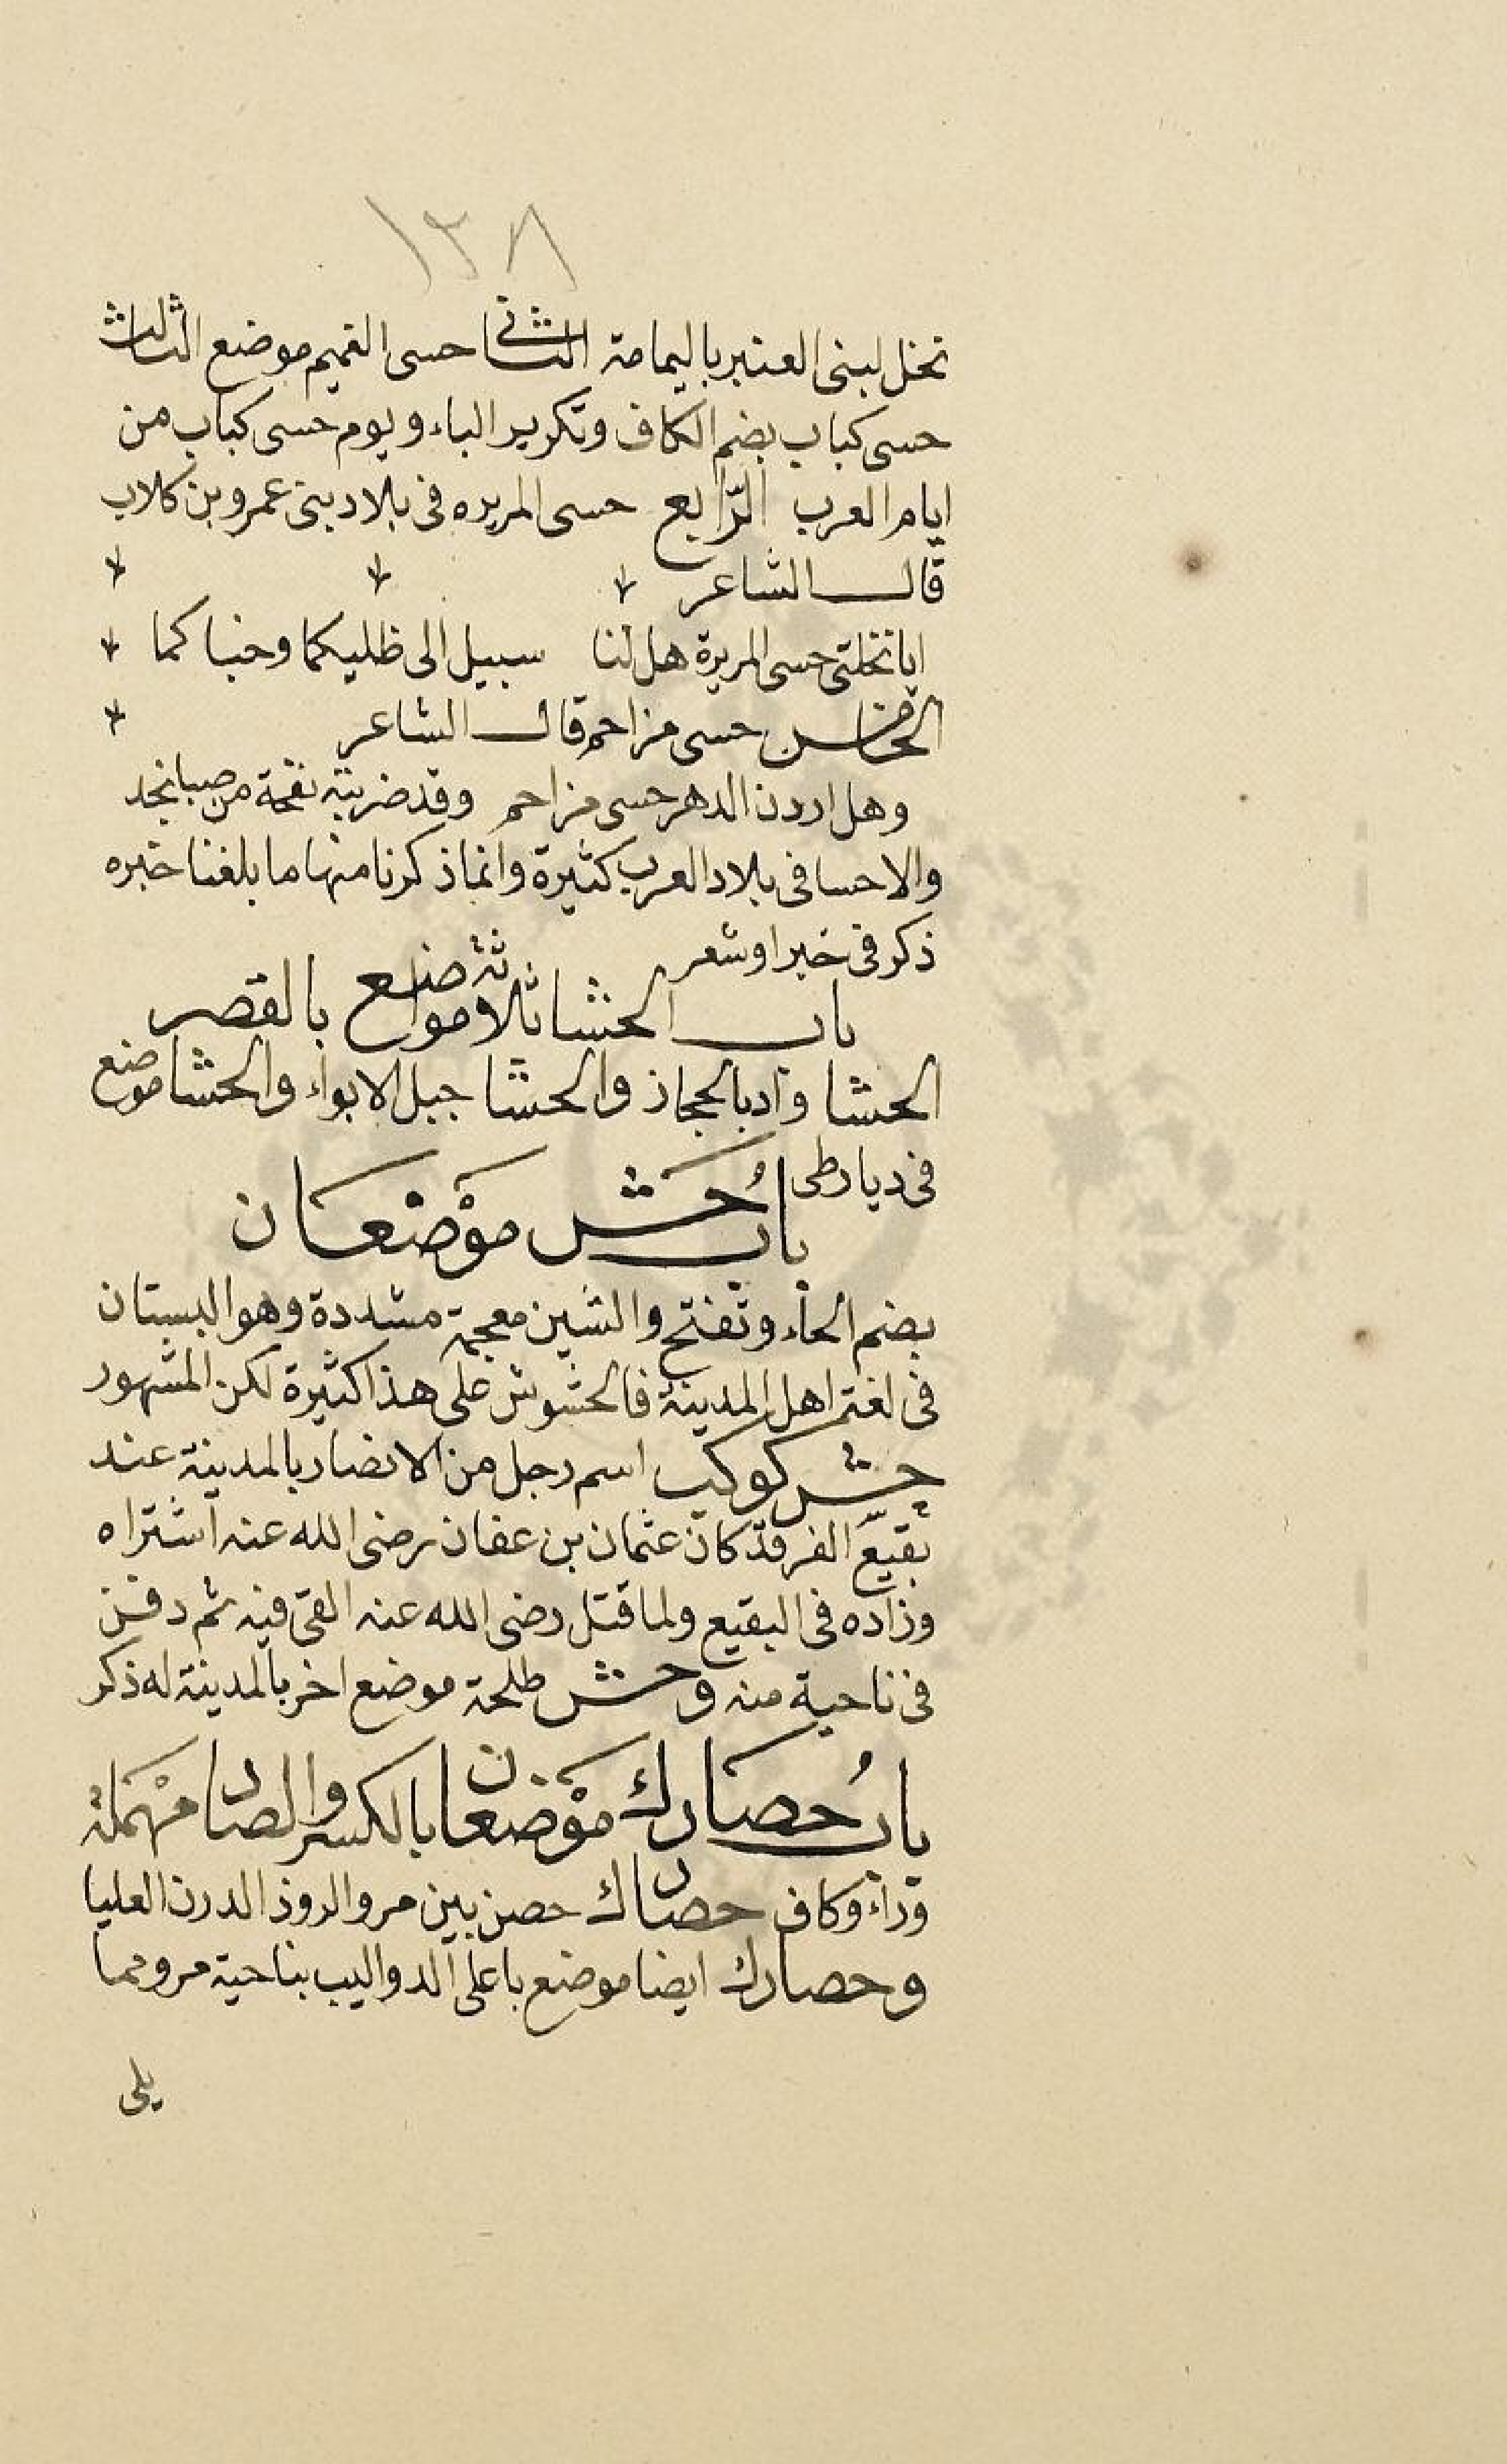 ١٣٨
نخل لبنى العنبر باليمامة الثانى حسى الغميم موضع الثالث
حسى كباب بضم الكاف وتكرير الباء ويوم حسى كباب من
ايام العرب الرّابع حسى المريره فى بلاد بنى عمرو بن كلاب
قال الشاعر
ايا نخلتى حسى المريرة هل لنا سبيل الى ظليكما وجنا كما
الخامس حسى مزاحم قال الشاعر
وهل اردن الدهر حسى مزاحم وقد ضربته نفحة من صبا نجد
والاحسا فى بلاد العرب كثيرة وانما ذكرنا منها ما بلغنا خبره
ذكر فى خبر او شعر
باب الحشا ثلاثة مواضع بالقصر
الحشا واد بالحجاز والحشا جبل الابواء والحشا موضع
فى ديار طى
باب حُشّ موْضعَان
بضم الحاء وتفتح والشين معجمة مشددة وهو البستان
فى لغة اهل المدينة فالحشوش على هذا كثيرة لكن المشهور
حش كوكب اسم رجل من الانصار بالمدينة عند
بقيع الغرقد كان عثمان بن عفان رضى الله عنه اشتراه
وزاده فى البقيع ولما قتل رضى الله عنه القى فيه ثم دفن
فى ناحية منه وحش طلحة موضع اخر بالمدينة له ذكر
باب حُصَارك موْضعان بالكسر والصاد مهْمَلة
وراء وكاف حصارك حصن بين مرو الروذ الدرن العليا
وحصارك ايضا موضع باعلى الدواليب بناحية مرو مما
يلى